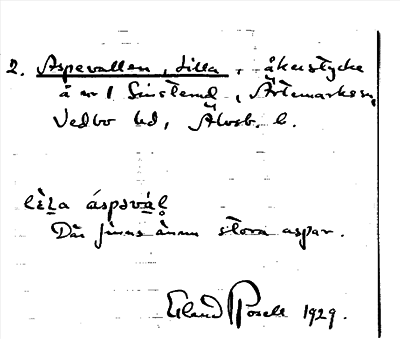 2. Aspevallen, Lilla, åkerstycke
å nr 1 Sinstemd, Ärtemarks sn,
Vedbo hd, Älvsb. l.
lɛ̀ɛa áspəvàl̥
Där finns även stora aspar.
Erland Rosell 1929.